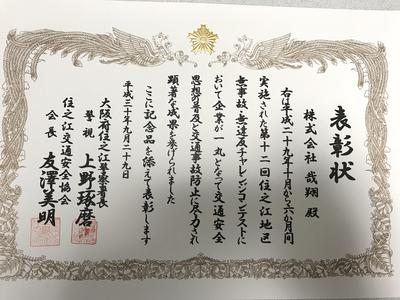 表彰状
株式会社 哉翔 殿
右は平成二十九年十月から六か月間
実施された第十二回住之江地区
無事故・無違反チャレンジコンテストに
おいて企業が一丸となって交通安全
思想の普及と交通事故防止に尽力され
顕著な成果を挙げられました
ここに記念品を添えて表彰します
平成三十年九月二十九日
大阪府住之江警察署長
警視 上野琢磨
住之江交通安全協会
会長 友澤美明